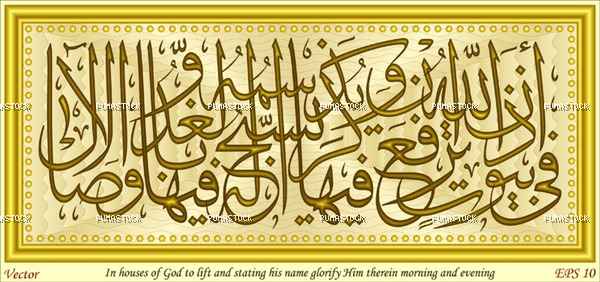 في بيوت أذن الله أن ترفع ويذكر فيها اسمه يسبح له فيها بالغدو والآصال
PUMASTOCK PUMASTOCK PUMASTOCK PUMASTOCK
PUMASTOCK PUMASTOCK PUMASTOCK PUMASTOCK
Vector In houses of God to lift and stating his name glorify Him therein morning and evening EPS 10